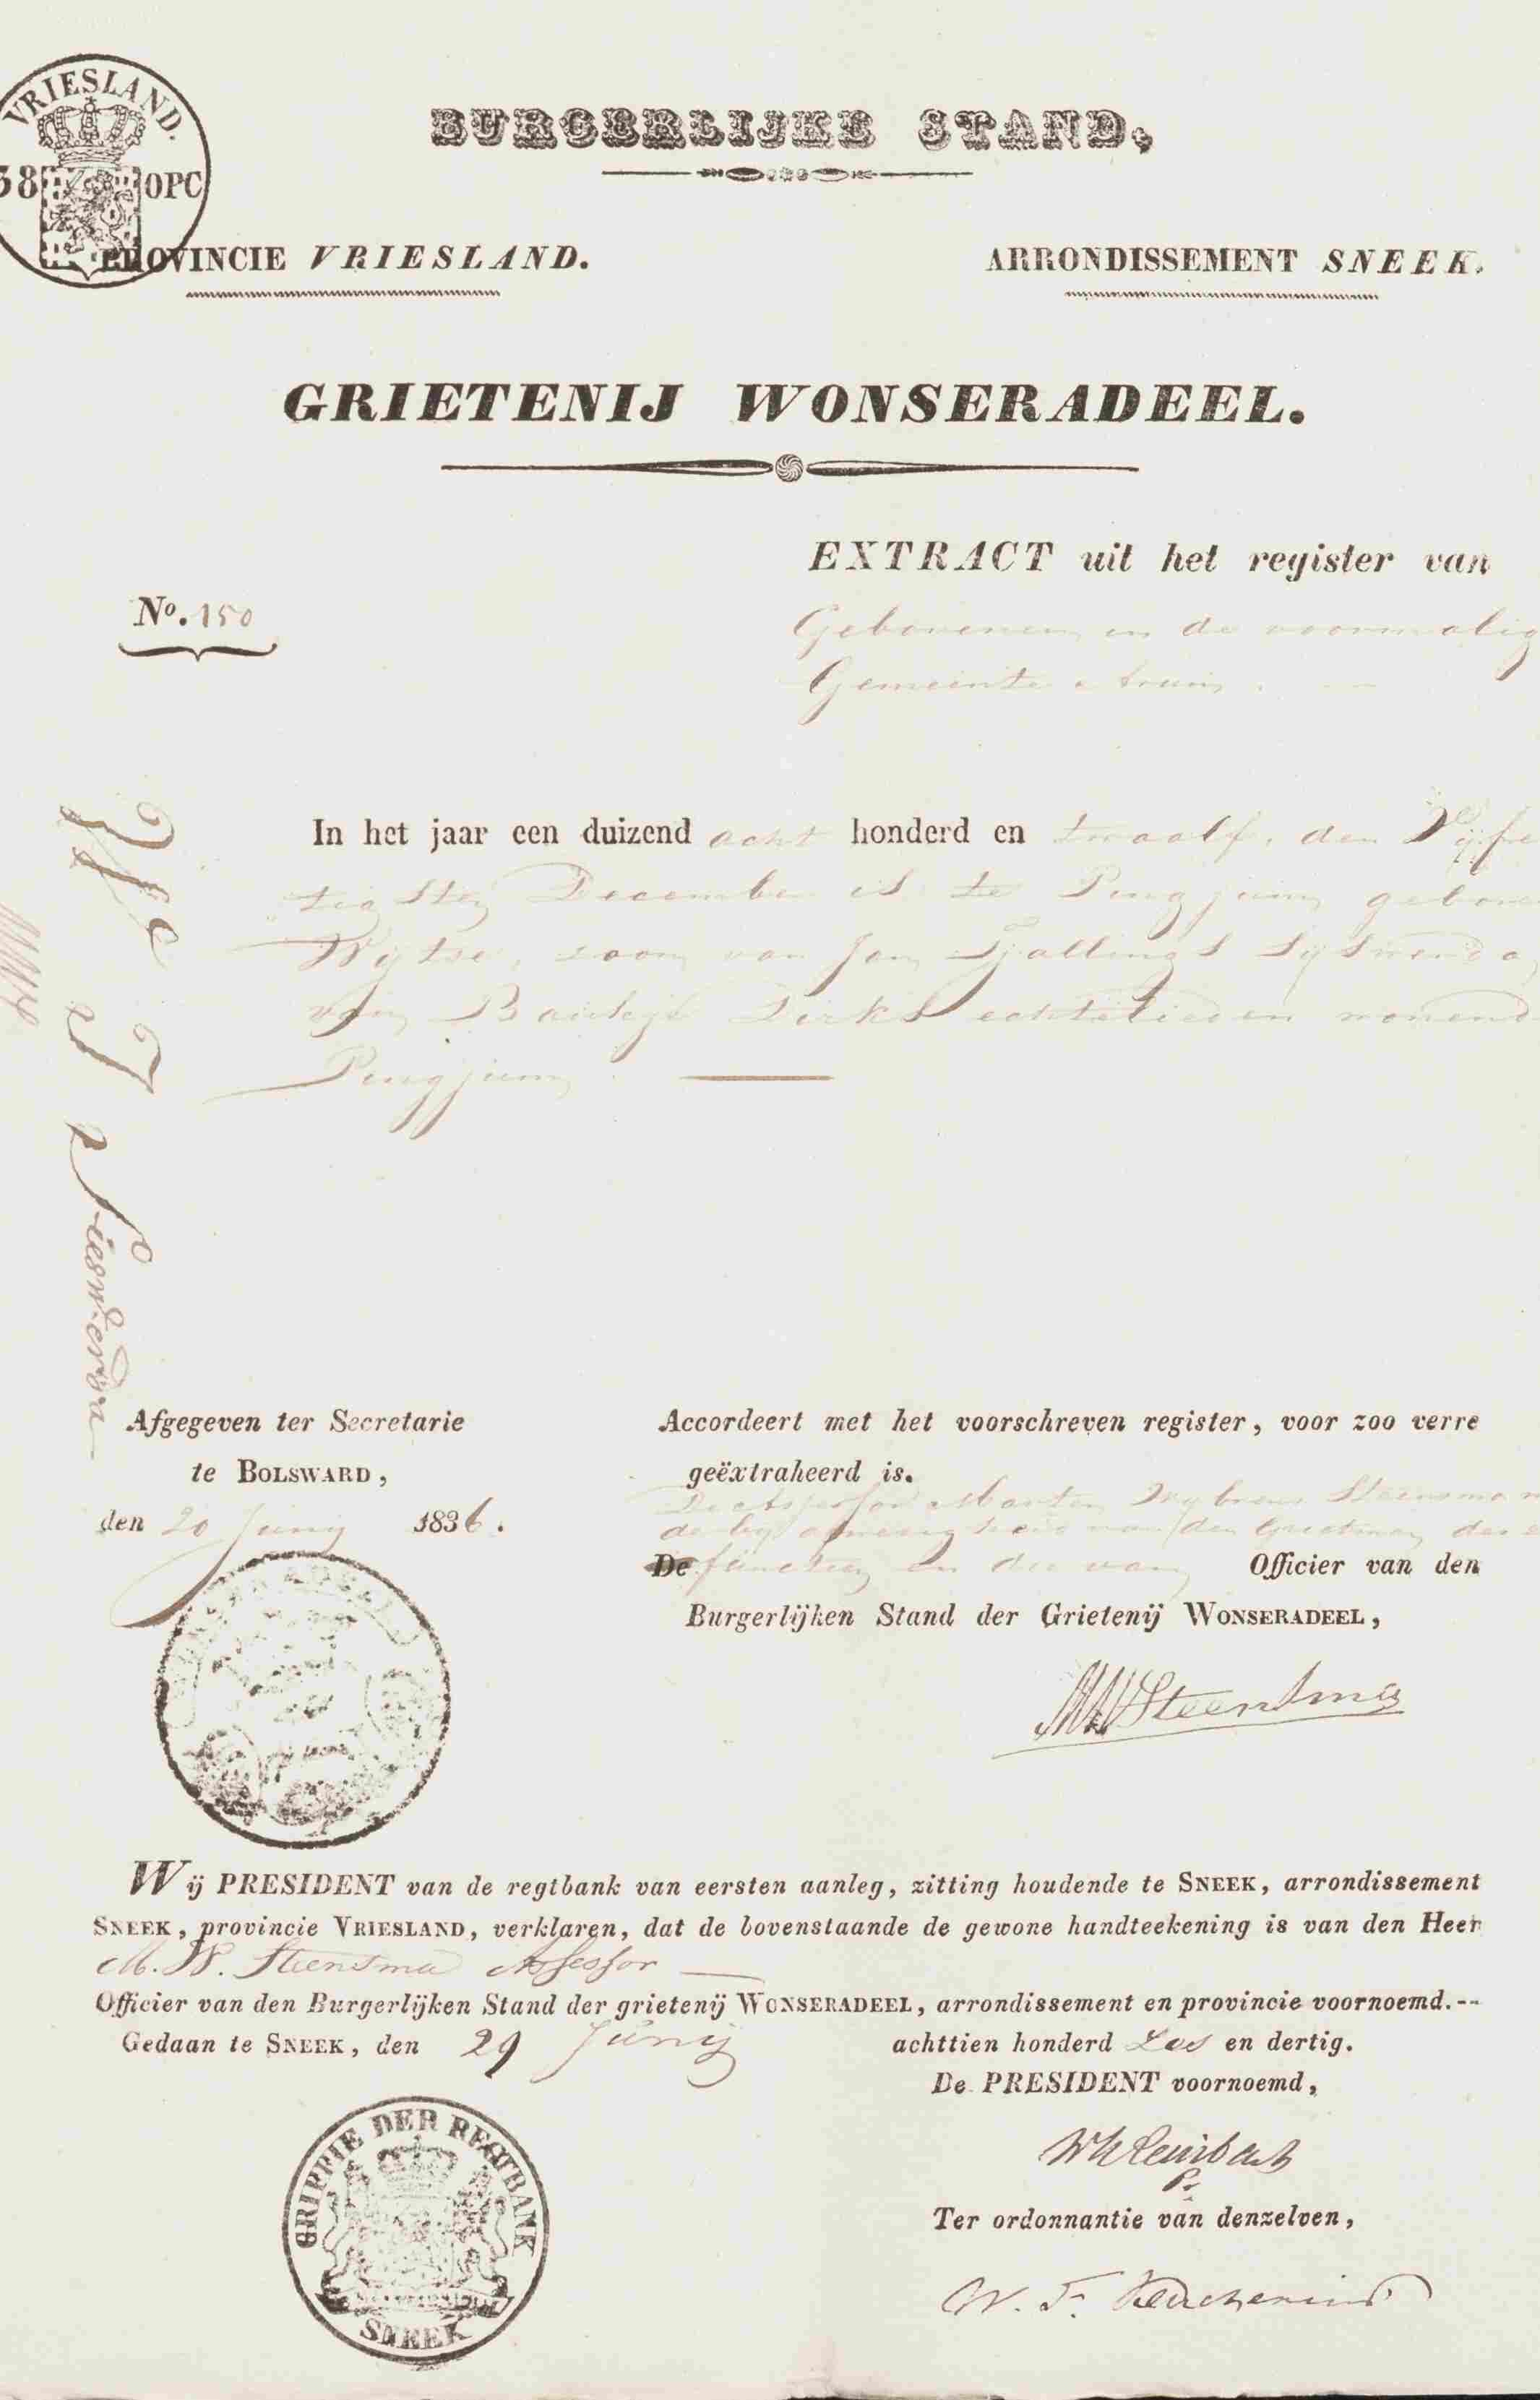 VRIESLAND.
38 OPC
BURGERLIJKE STAND,
PROVINCIE VRIESLAND.
ARRONDISSEMENT SNEEK.
GRIETENIJ WONSERADEEL.
EXTRACT uit het register van
No. 150
Geborenen in de voormalig
Gemeente Arum.
In het jaar een duizend acht honderd en twaalf, den Vijfen
tigsten December is te Pingjum gebore
Wytse, zoon van Jan Tjallings
van Dirks echtelieden wonend
Pingjum
Afgegeven ter Secretarie
te BOLSWARD,
den 20 Junij 1836.
Accordeert met het voorschreven register, voor zoo verre
geëxtraheerd is.
De Assessor Marten Wybrens Steensma
de bij afwezigheid van den Grietman des
De functien en die van Officier van den
Burgerlijken Stand der Grietenij WONSERADEEL,
MWSteensma
Wij PRESIDENT van de regtbank van eersten aanleg, zitting houdende te SNEEK, arrondissement
SNEEK, provincie VRIESLAND, verklaren, dat de bovenstaande de gewone handteekening is van den Heer
M. W. Steensma Assessor
Officier van den Burgerlijken Stand der grietenij WONSERADEEL, arrondissement en provincie voornoemd.--
Gedaan te SNEEK, den 29 Junij achttien honderd Zes en dertig.
De PRESIDENT voornoemd,
Ter ordonnantie van denzelven,
GRIFFIE DER REGTBANK
SNEEK